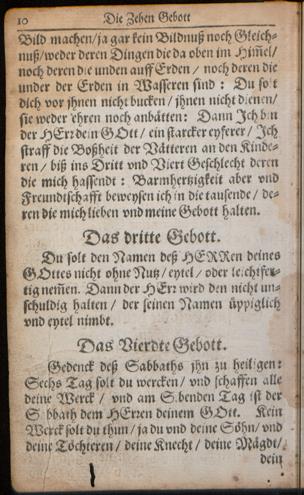 10 Die Zehen Gebott
Bild machen/ja gar kein Bildnuß noch Gleich-
nuß/weder deren Dingen die da oben im Him̃el/
noch deren die unden auff Erden / noch deren die
under der Erden in Wasseren sind : Du solt
dich vor jhnen nicht bucken / jhnen nicht dienen/
sie weder ehren noch anbätten: Dann Ich bin
der HErr dein GOtt / ein starcker eyferer / Ich
straff die Boßheit der Vätteren an den Kinde-
ren / biß ins Dritt vnd Viert Geschlecht deren
die mich hassendt : Barmhertzigkeit aber vnd
Freundtschafft beweysen ich in die tausende / de-
ren die mich lieben vnd meine Gebott halten.
Das dritte Gebott.
Du solt den Namen deß HERRen deines
GOttes nicht ohne Nutz / eytel / oder leichtfer-
tig nem̃en. Dann der HErr wird den nicht un-
schuldig halten / der seinen Namen üppiglich
vnd eytel nimbt.
Das Vierdte Gebott.
Gedenck deß Sabbaths jhn zu heiligen:
Sechs Tag solt du wercken / vnd schaffen alle
deine Werck / vnd am Sibenden Tag ist der
Sabbath dem HErren deinem GOtt. Kein
Werck solt du thun / ja du vnd deine Söhn/ vnd
deine Töchteren / deine Knecht / deine Mägdt/
dein